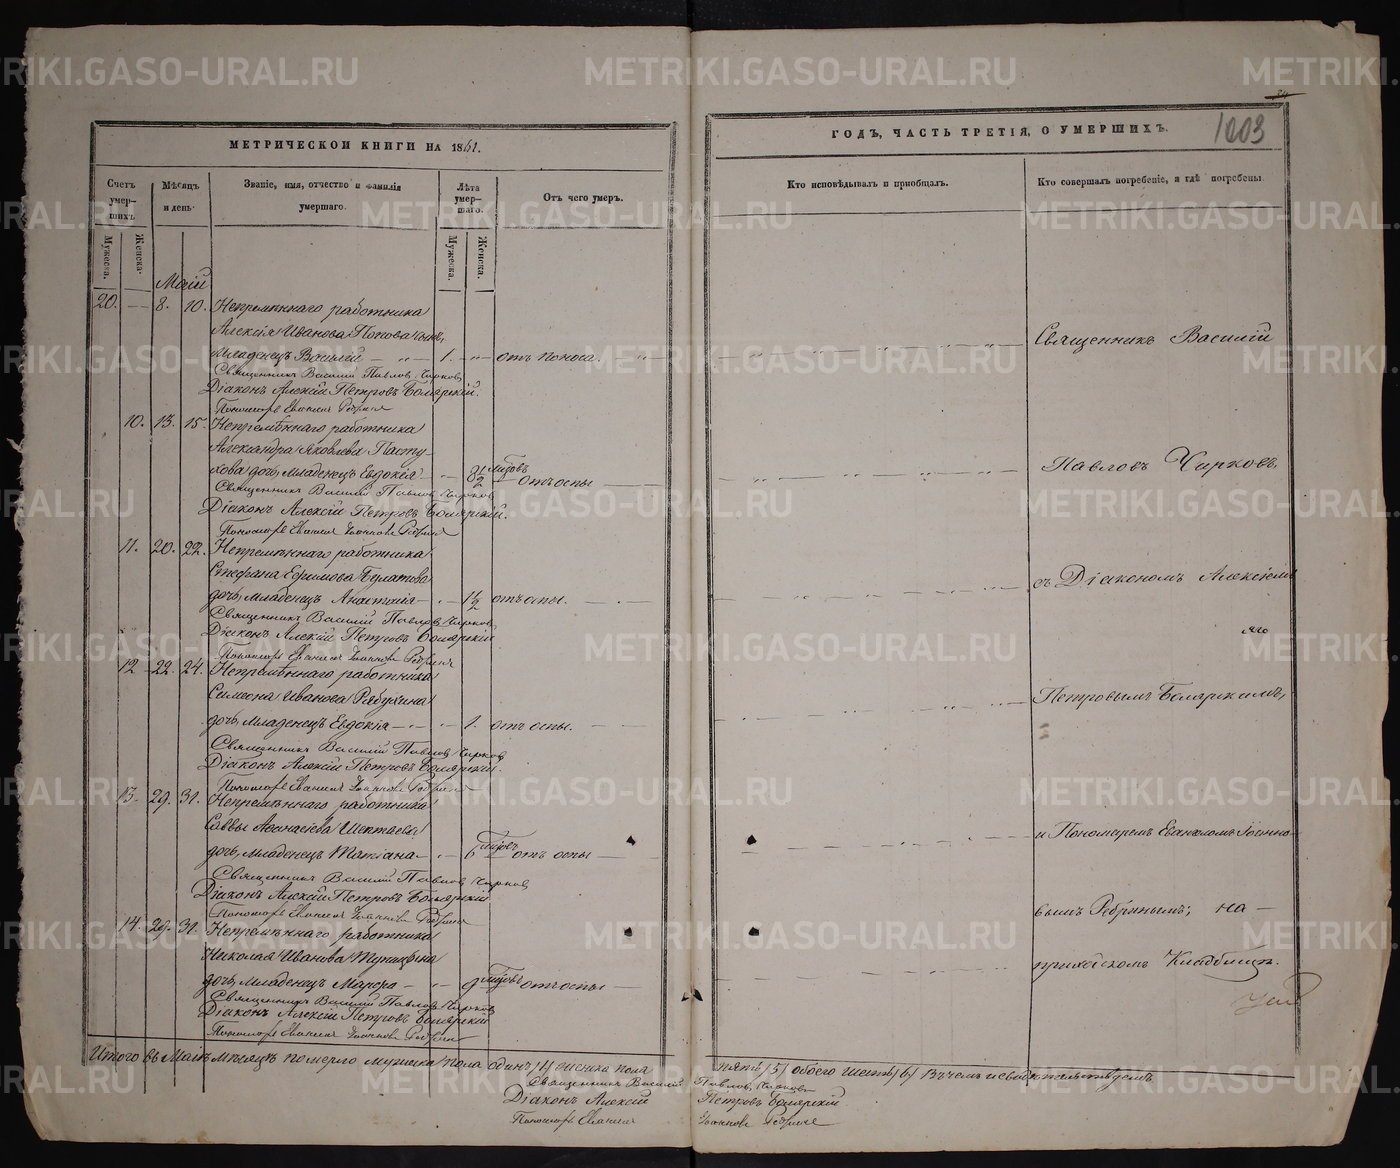 МЕТРИЧЕСКОЙ КНИГИ НА 1861.
Счетъ умер-шихъ.
Мѣсяцъ и день.
Званіе, имя, отчество и фамилія умершаго.
Лѣта умер-шаго.
Отъ чего умеръ.
Мужеска. Женска. Мужеска. Женска.
Маій
20. — 8. 10. Непремѣннаго работника
Алексія Иванова Попова сынъ,
Младенецъ Василій — 1. — отъ поноса.
Священникъ Василій Павловъ Чирковъ
Діаконъ Алексій Петровъ Боярскій.
Пономарь Евангелъ Ребринъ
10. 13. 15. Непремѣннаго работника
Александра Яковлева Пасту
хова дочь, младенецъ Евдокія — 8½ мцовъ отъ оспы
Священникъ Василій Павловъ Чирковъ
Діаконъ Алексій Петровъ Боярскій.
Пономарь Евангелъ Іоанновъ Ребринъ
11. 20. 22. Непремѣннаго работника
Стефана Ефимова Булатова
дочь, младенецъ Анастасія — 1½ отъ оспы.
Священникъ Василій Павловъ Чирковъ
Діаконъ Алексій Петровъ Боярскій
Пономарь Евангелъ Іоанновъ Ребринъ
12 22. 24. Непремѣннаго работника
Симеона Иванова
дочь, младенецъ Евдокія — 1. отъ оспы.
Священникъ Василій Павловъ Чирковъ
Діаконъ Алексій Петровъ Боярскій.
Пономарь Евангелъ Іоанновъ Ребринъ
13. 29. 31. Непремѣннаго работника
Саввы Аѳанасіева
дочь, младенецъ Татіана — 6 мцовъ отъ оспы
Священникъ Василій Павловъ Чирковъ
Діаконъ Алексій Петровъ Боярскій
Пономарь Евангелъ Іоанновъ Ребринъ
14. 29. 31. Непремѣннаго работника
Николая Иванова
дочь, младенецъ Марѳа — 9 мцовъ отъ оспы
Священникъ Василій Павловъ Чирковъ
Діаконъ Алексій Петровъ Боярскій
Пономарь Евангелъ Іоанновъ Ребринъ
Итого въ Маіѣ мѣсяцѣ померло мужеска пола одинъ /1/ женска пола
Священникъ Василій
Діаконъ Алексій
Пономарь Евангелъ
ГОДЪ, ЧАСТЬ ТРЕТІЯ, О УМЕРШИХЪ.
1003
Кто исповѣдывалъ и пріобщалъ.
Кто совершалъ погребеніе, и гдѣ погребены.
Священникъ Василій
Павловъ Чирковъ,
съ Діакономъ Алексіемъ
Петровымъ Боярскимъ,
и Пономаремъ Евангеломъ Іоанно-
вымъ Ребринымъ; на —
приходскомъ Кладбищѣ.
пять /5/ обоего шесть /6/ Въ чемъ и свидѣтельствуемъ
Павловъ Чирковъ
Петровъ Боярскій
Іоанновъ Ребринъ
METRIKI.GASO-URAL.RU